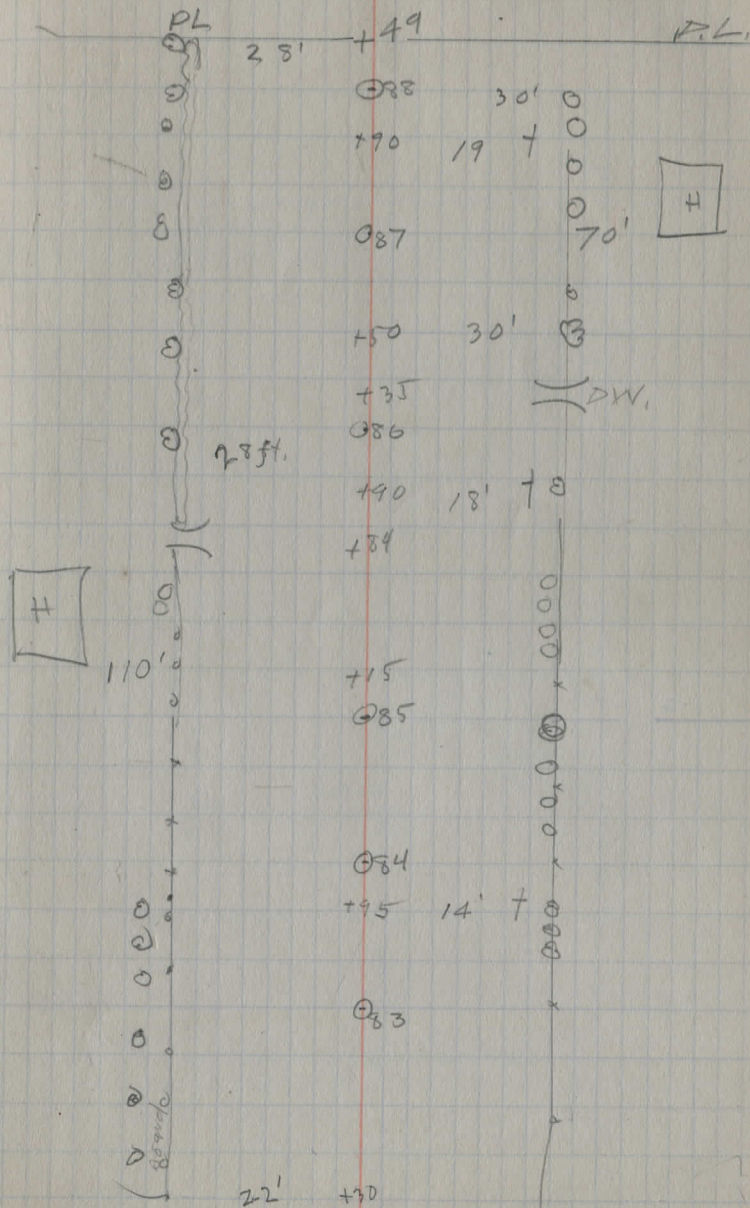 PL 28' +49 P.L.
88 30'
+90 19 †
87 70'
H
+50 30'
+35 DW.
86
28ft.
+90 18' †
+84
H
110' +15
85
84
+95 14' †
83
22' +30